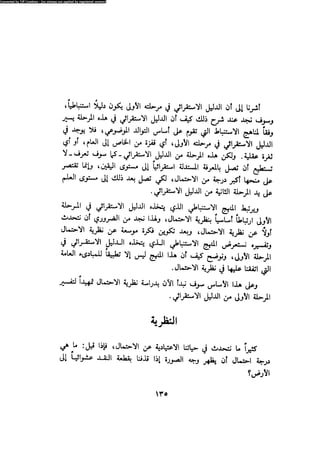 Converted by Tiff Combine - (no stamps are applied by registered version)
أشرنا إلى أن الدليل الاستقرائي في مرحلته الأولى يكون دليلا استنباطيا،
وسوف نجد عند شرح ذلك كيف أن الدليل الاستقرائي في هذه المرحلة يسير
وفقا لمناهج الاستنباط التي تقوم على أساس التوالد الموضوعي، فلا يوجد في
الدليل الاستقرائي في مرحلته الأولى، أي قفزة من الخاص إلى العام، أو أي
ثغرة عقلية. ولكن هذه المرحلة من الدليل الاستقرائي - كما سوف نعرف - لا
تستطيع أن تصل بالمعرفة المستدلة استقرائيا إلى مستوى اليقين، وإنما تقتصر
على منحها أكبر درجة من الاحتمال، لكي تصل بعد ذلك إلى مستوى العلم
على يد المرحلة الثانية من الدليل الاستقرائي.
ويرتبط المنهج الاستنباطي الذي يتخذه الدليل الاستقرائي في المرحلة
الأولى ارتباطا أساسيا بنظرية الاحتمال، ولهذا نجد من الضروري أن نتحدث
أولا عن نظرية الاحتمال، وبعد تكوين فكرة موسعة عن نظرية الاحتمال
وتفسيره نستعرض المنهج الاستنباطي الذي يتخذه الدليل الاستقرائي في
المرحلة الأولى، ونوضح كيف أن هذا المنهج ليس إلا تطبيقا للمبادىء العامة
التي اتفقنا عليها في نظرية الاحتمال.
وعلى هذا الأساس سوف نبدأ الآن بدراسة نظرية الاحتمال تمهيدا لتفسير
المرحلة الأولى من الدليل الاستقرائي.
النظرية
كثيرا ما نتحدث في حياتنا الاعتيادية عن الاحتمال، فإذا قيل: ما هي
درجة احتمال أن يظهر وجه الصورة إذا قذفنا بقطعة النقد عشوائيا إلى
الأرض؟
١٣٥